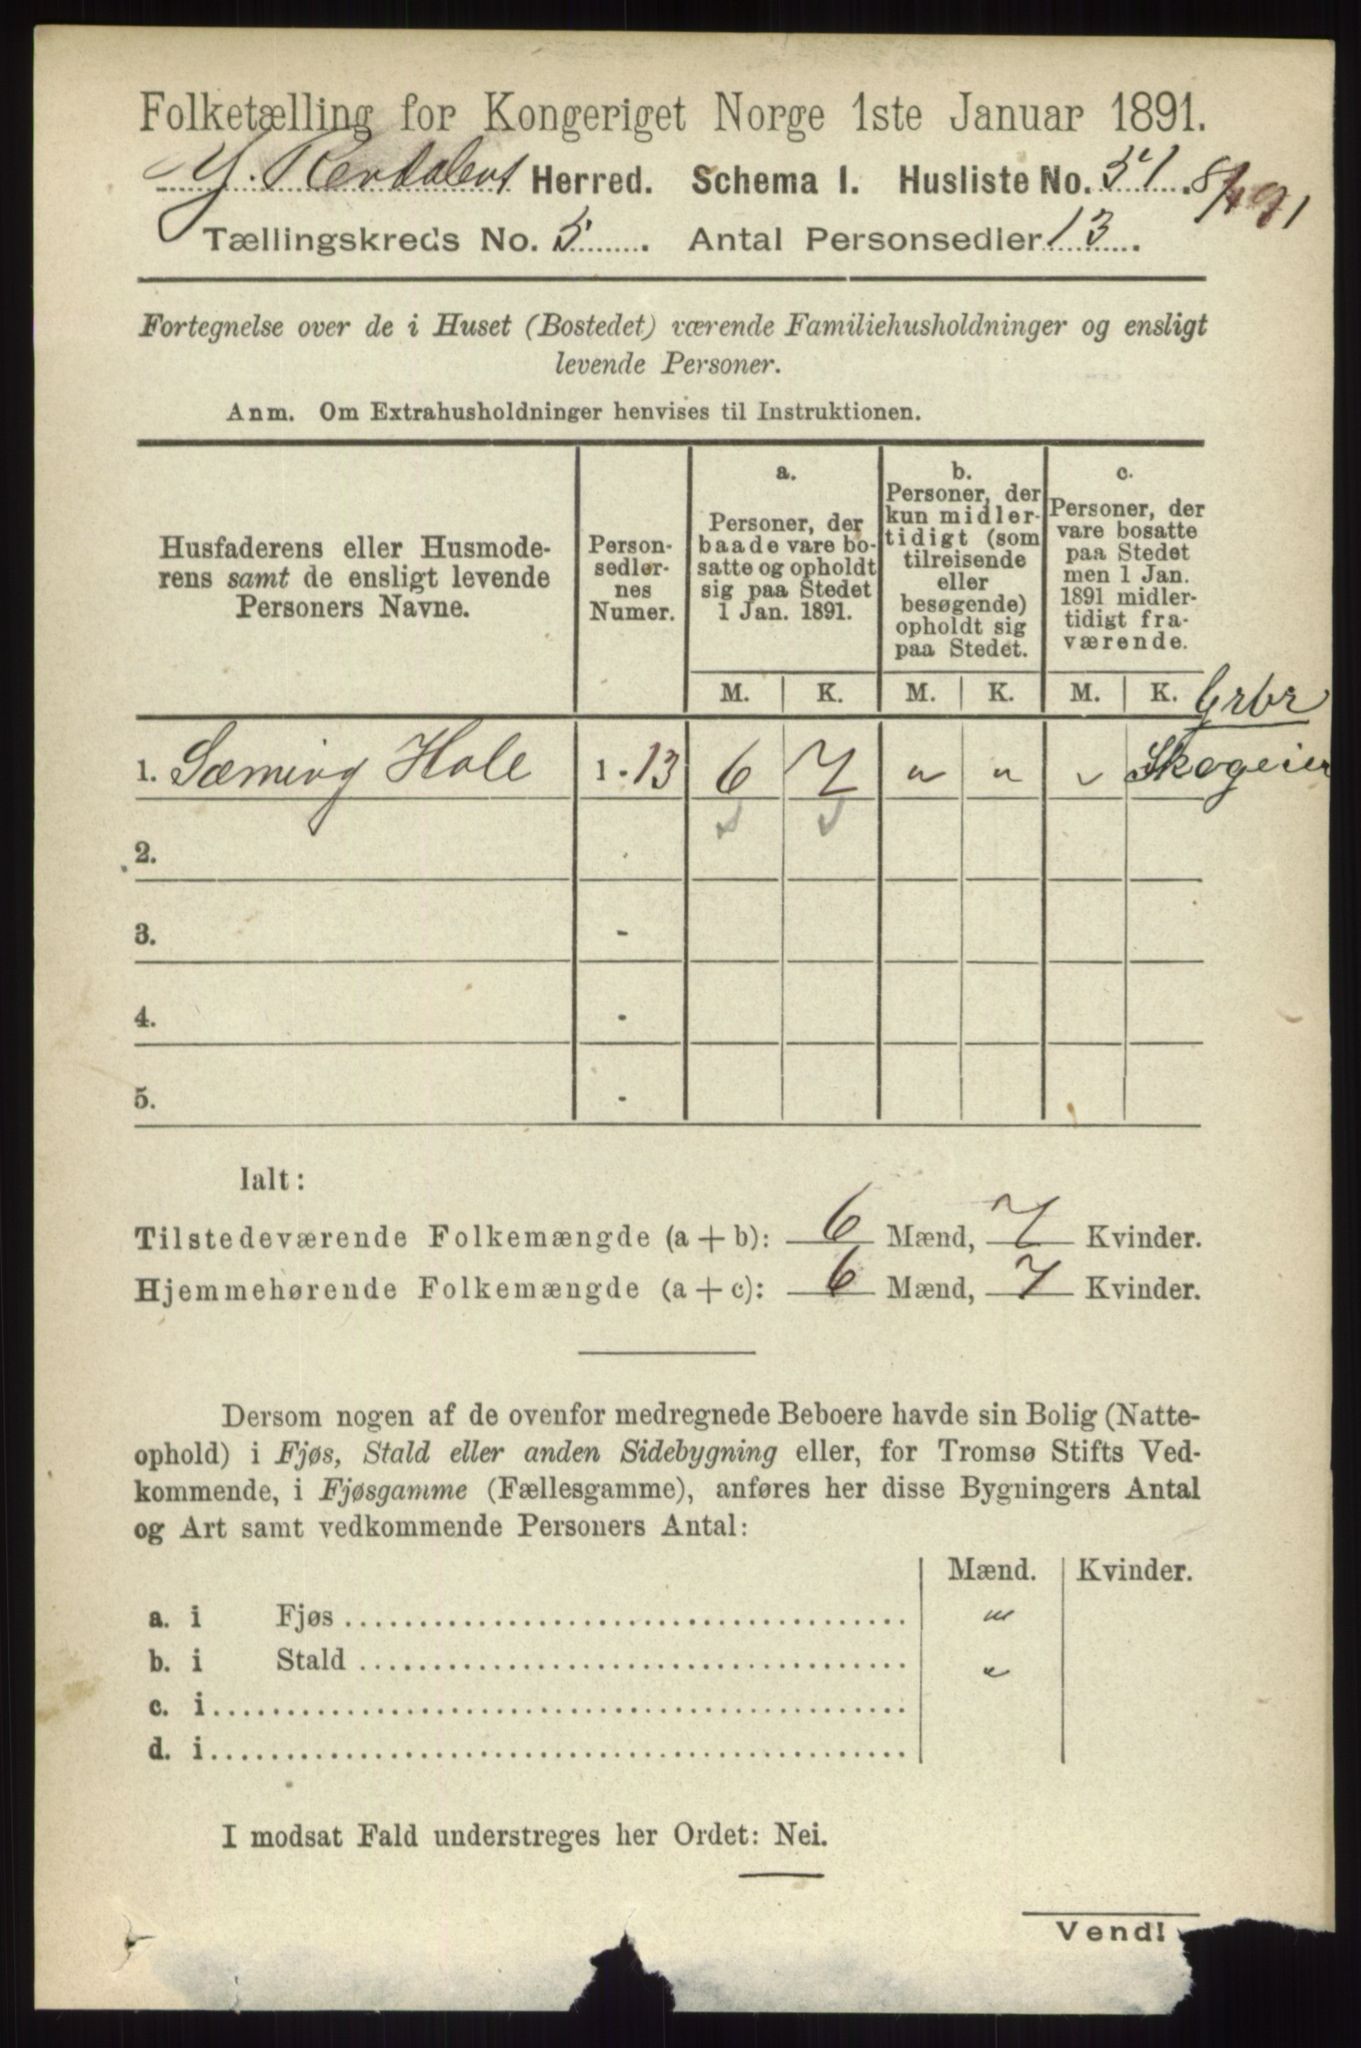 Folketælling for Kongeriget Norge 1ste Januar 1891.
Y. Rendalens Herred. Schema I. Husliste No. 51.
Tællingskreds No. 5. Antal Personsedler 13.
Fortegnelse over de i Huset (Bostedet) værende Familiehusholdninger og ensligt
levende Personer.
Anm. Om Extrahusholdninger henvises til Instruktionen.
Husfaderens eller Husmode-
rens samt de ensligt levende
Personers Navne.
Person-
sedler-
nes
Numer.
a.
Personer, der
baade vare bo-
satte og opholdt
sig paa Stedet
1 Jan. 1891.
b.
Personer, der
kun midler-
tidigt (som
tilreisende
eller
besøgende)
opholdt sig
paa Stedet.
c.
Personer, der
vare bosatte
paa Stedet
men 1 Jan.
1891 midler-
tidigt fra-
værende.
M. K. M. K. M. K.
Grbr
1. Sæming Hole 1 - 13 6 7 „ „ „ Skogeier
2.
3. -
4. -
5. -
Ialt:
Tilstedeværende Folkemængde (a + b): 6 Mænd, 7 Kvinder.
Hjemmehørende Folkemængde (a + c): 6 Mænd, 7 Kvinder.
Dersom nogen af de ovenfor medregnede Beboere havde sin Bolig (Natte-
ophold) i Fjøs, Stald eller anden Sidebygning eller, for Tromsø Stifts Ved-
kommende, i Fjøsgamme (Fællesgamme), anføres her disse Bygningers Antal
og Art samt vedkommende Personers Antal:
Mænd. Kvinder.
a. i Fjøs „
b. i Stald „
c. i
d. i
I modsat Fald understreges her Ordet: Nei.
Vend!